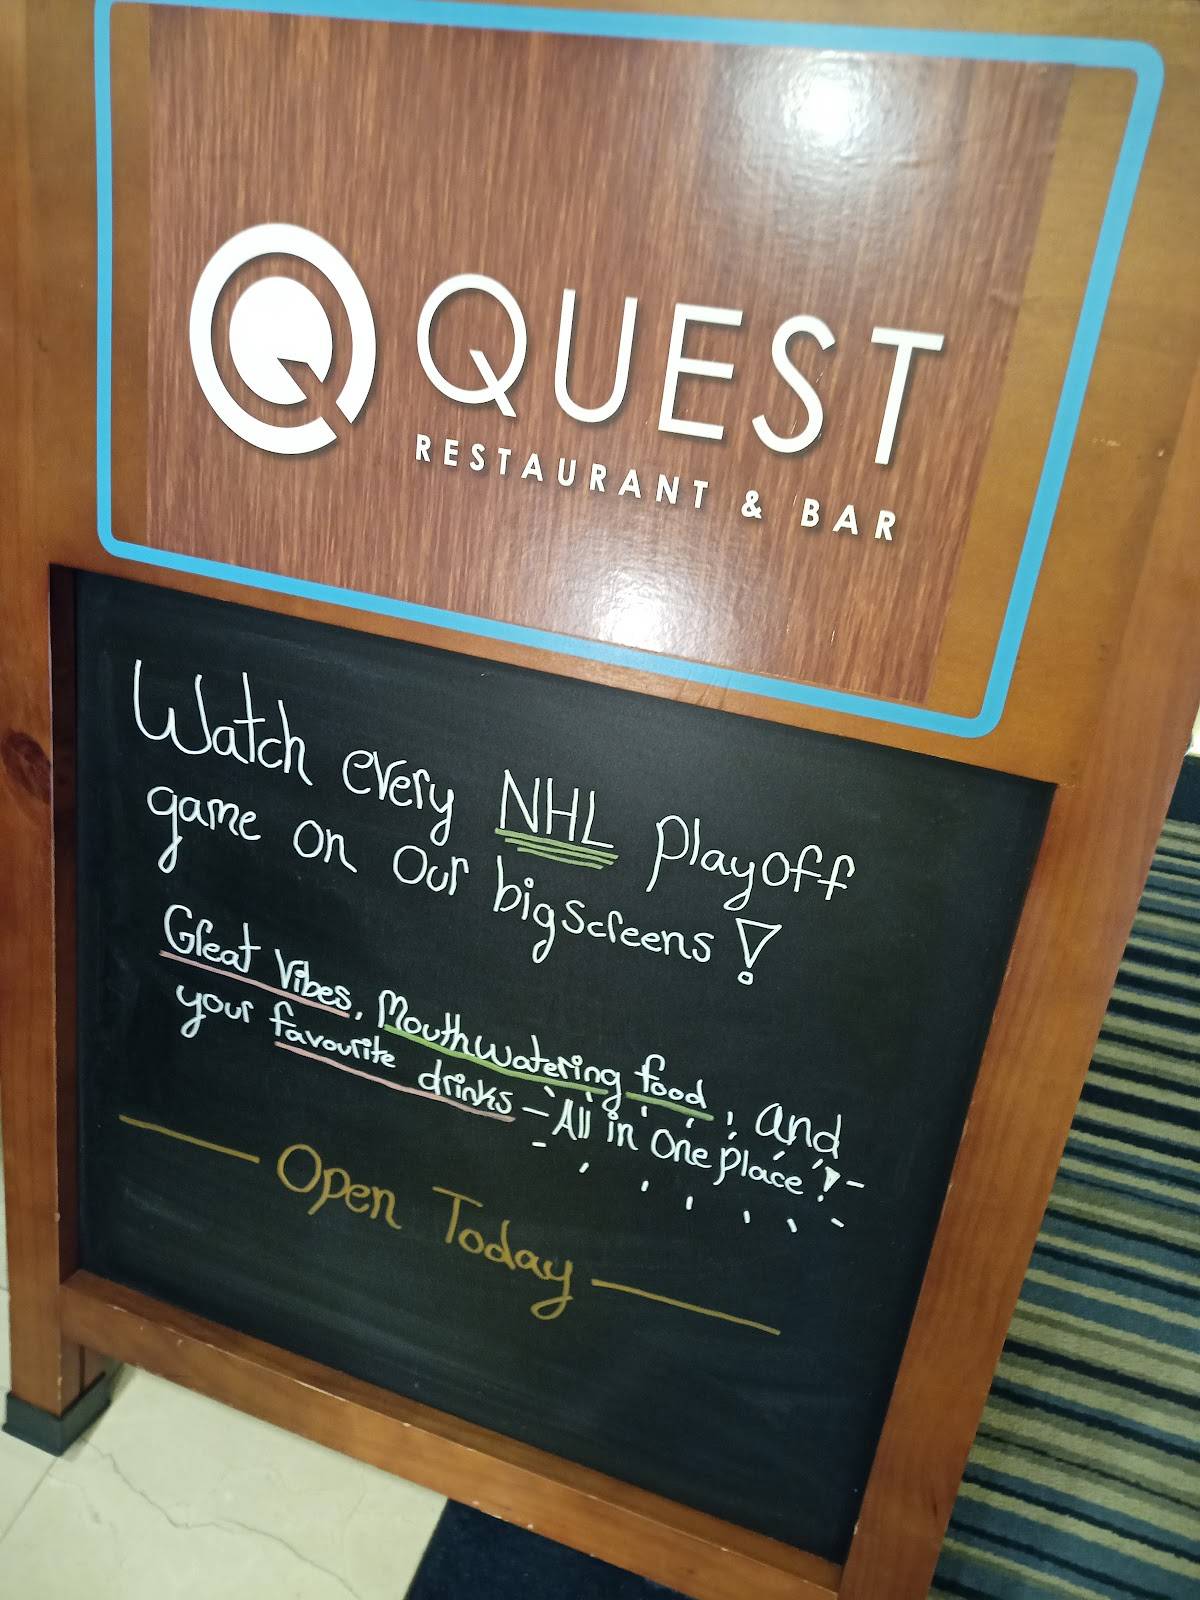 QUEST
RESTAURANT & BAR
Watch every NHL playoff
game on our bigscreens!
Great Vibes, Mouthwatering food, and
your favourite drinks - All in one place!
Open Today